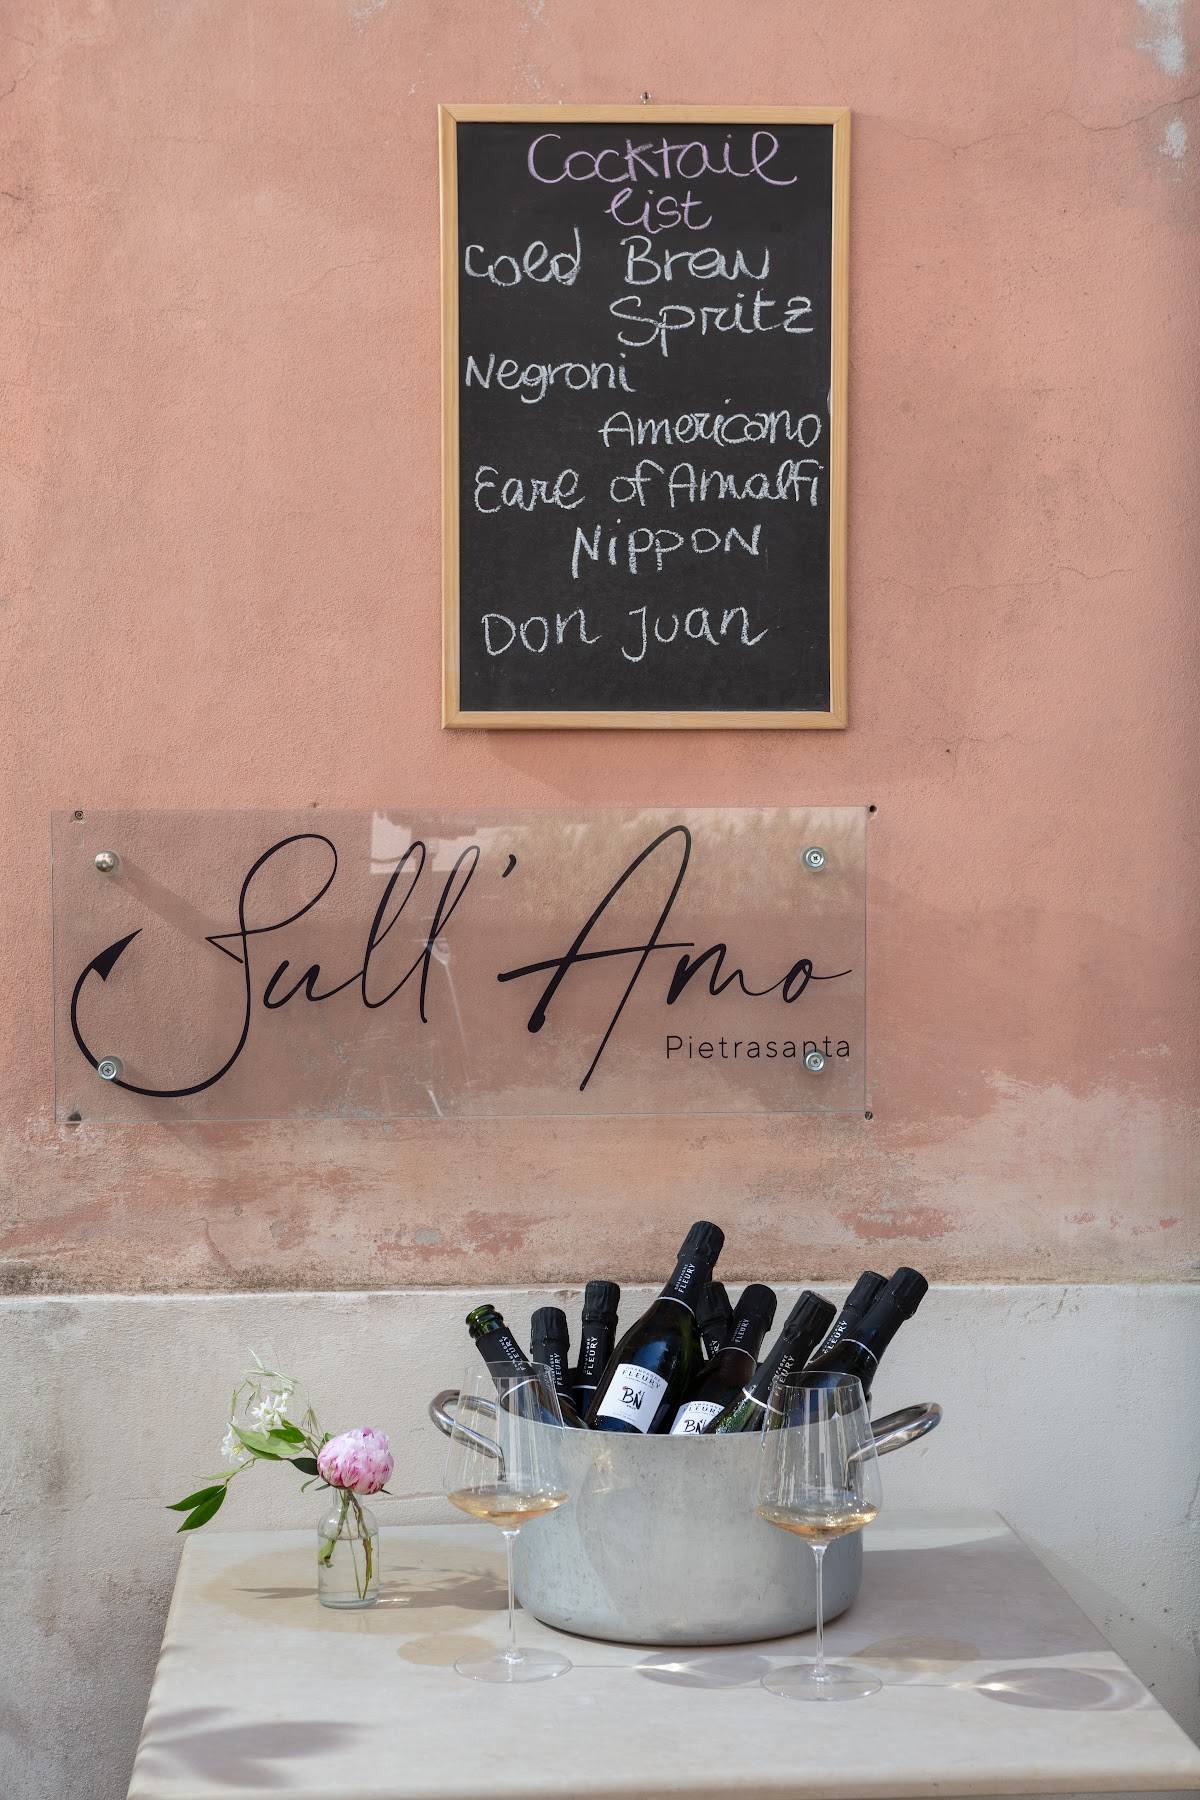 Cocktail
list
Cold Brew
Spritz
Negroni
Americano
Earl of Amalfi
Nippon
Don Juan
Sull'Amo
Pietrasanta
FLEURY
FLEURY
FLEURY
FLEURY
FLEURY
CHAMPAGNE
FLEURY
BN
FLEURY
BN